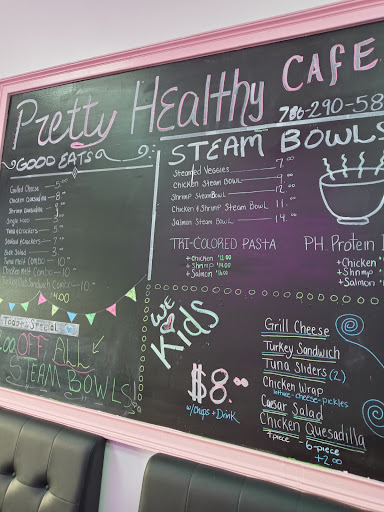 Pretty Healthy CAFE
786-290-58
GOOD EATS
Grilled Cheese 5.00
Chicken Quesadilla 8.00
Shrimp Quesadilla
Tuna & Crackers 5.00
Seafood & Crackers 7.00
Side Salad
Tuna Melt Combo 10.00
Chicken Melt Combo 10.00
Turkey Club Sandwich Combo 10.00
STEAM BOWLS
Steamed Veggies 7.00
Chicken Steam Bowl 9.00
Shrimp Steam Bowl 12.00
Chicken & Shrimp Steam Bowl 11.00
Salmon Steam Bowl 14.00
TRI-COLORED PASTA
+Chicken
+Shrimp $14.00
+Salmon
PH Protein
+Chicken
+Shrimp
+Salmon
Special
OFF ALL
STEAM BOWLS
WE
Kids
$8.00
w/Chips + Drink
Grill Cheese
Turkey Sandwich
Tuna Sliders (2)
Chicken Wrap
lettuce-cheese-pickles
Caesar Salad
Chicken Quesadilla
4 piece - 6-piece
+2.00